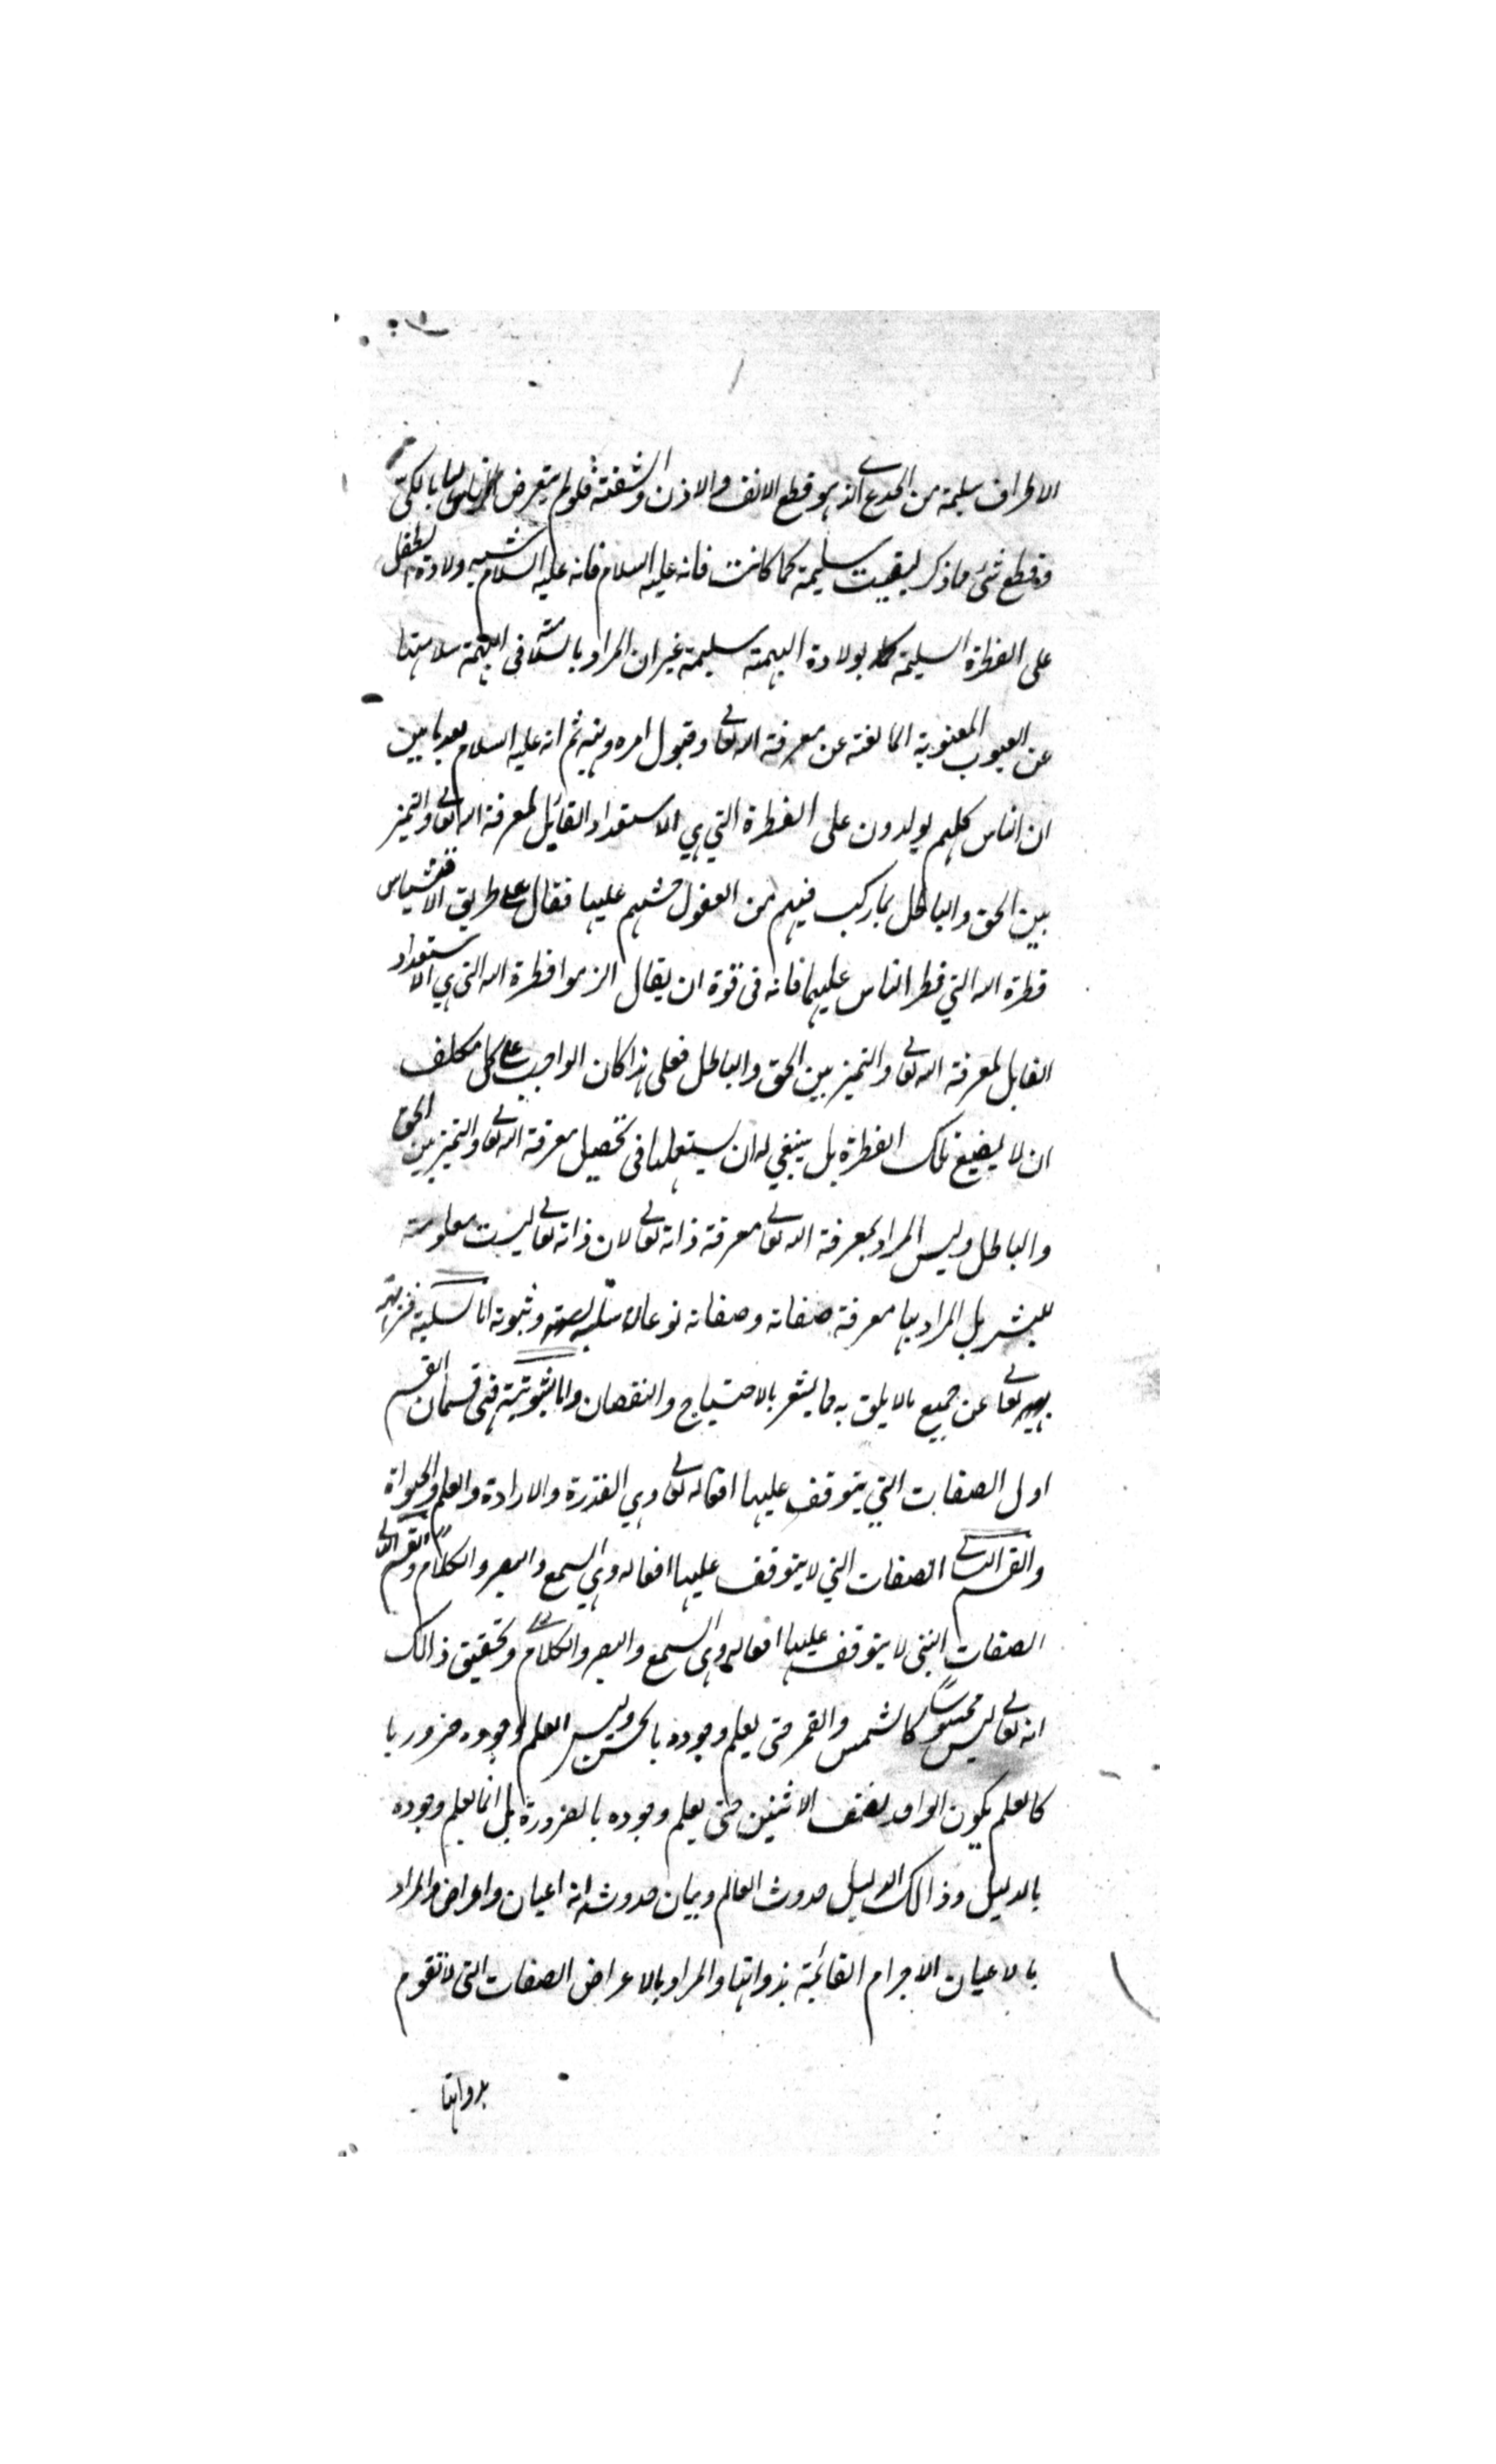 الاطراف سليمة من الجدع الذي هو قطع الانف والاذن والشفة فلو لم يتعرض الناس لها بالكي
وقطع شئ ماذكر لبقيت سليمة كما كانت فانه عليه السلام فانه عليه السلام شبه ولادة الطفل
على الفطرة السليمة بولادة البهيمة سليمة غير ان المراد بالسلامة فى البهيمة سلامتها
عن العيوب المعنوية المانعة عن معرفة الله تعالى وقبول امره ونهيه ثم انه عليه السلام بعد ما بين
ان الناس كلهم يولدون على الفطرة التي هي الاستعداد القابل لمعرفة الله تعالى والتميز
بين الحق والباطل بما ركب فيهم من العقول حثهم عليها فقال على طريق الاقتباس
فطرة الله التي فطر الناس عليها فانه فى قوة ان يقال الزموا فطرة الله التي هي الاستعداد
القابل لمعرفة الله تعالى والتميز بين الحق والباطل فعلى هذا كان الواجب على كل مكلف
ان لا يضيع تلك الفطرة بل ينبغي له ان يستعملها فى تحصيل معرفة الله تعالى والتميز بين الحق
والباطل وليس المراد بمعرفة الله تعالى معرفة ذاته تعالى لان ذاته تعالى ليست معلومة
للبشر بل المراد بها معرفة صفاته وصفاته نوعان سلبية وثبوتة اما السلبية
تعالى عن جميع مالا يلق به مما يشعر بالاحتياج والنقصان واما الثبوتية فهى قسمان القسم
اول الصفات التي يتوقف عليها افعاله تعالى وهي القدرة والارادة والعلم والحيوة
والقسم الثانى الصفات التي لا يتوقف عليها افعاله وهي السمع والبصر والكلام والقسم الثانى
الصفات التى لا يتوقف عليها افعاله وهى السمع والبصر والكلام وتحقيق ذالك
انه تعالى ليس محسوسا كالشمس والقمر حتى يعلم وجوده بالحس وليس العلم بوجوده ضروريا
كالعلم بكون الواحد نصف الاثنين حتى يعلم وجوده بالضرورة بل انما يعلم وجوده
بالدليل وذالك الدليل حدوث العالم وبيان حدوثه انه اعيان واعراض والمراد
بالاعيان الاجرام القائمة بذواتها والمراد بالاعراض الصفات التى لا تقوم
بذواتها